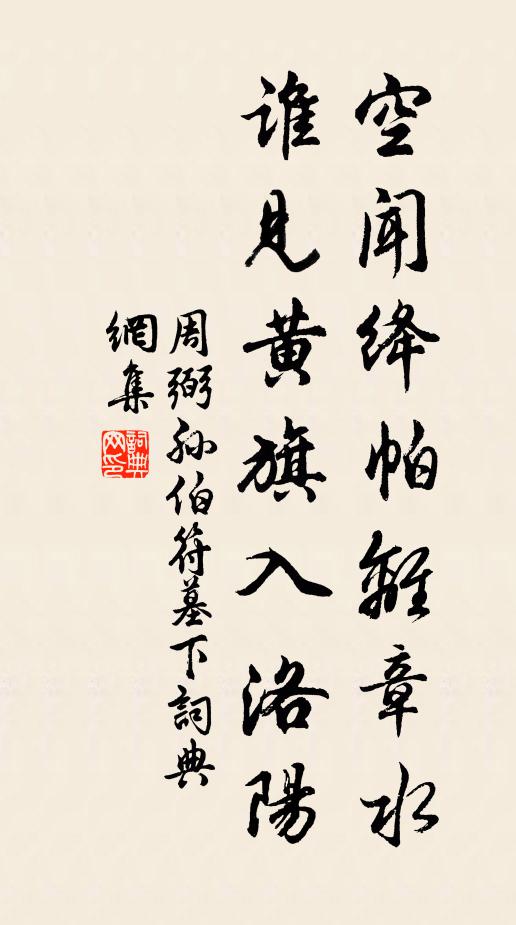 空闻绛帕離章水
谁见黄旗入洛陽
周弼孙伯符墓下詞典
網集
詞典網印